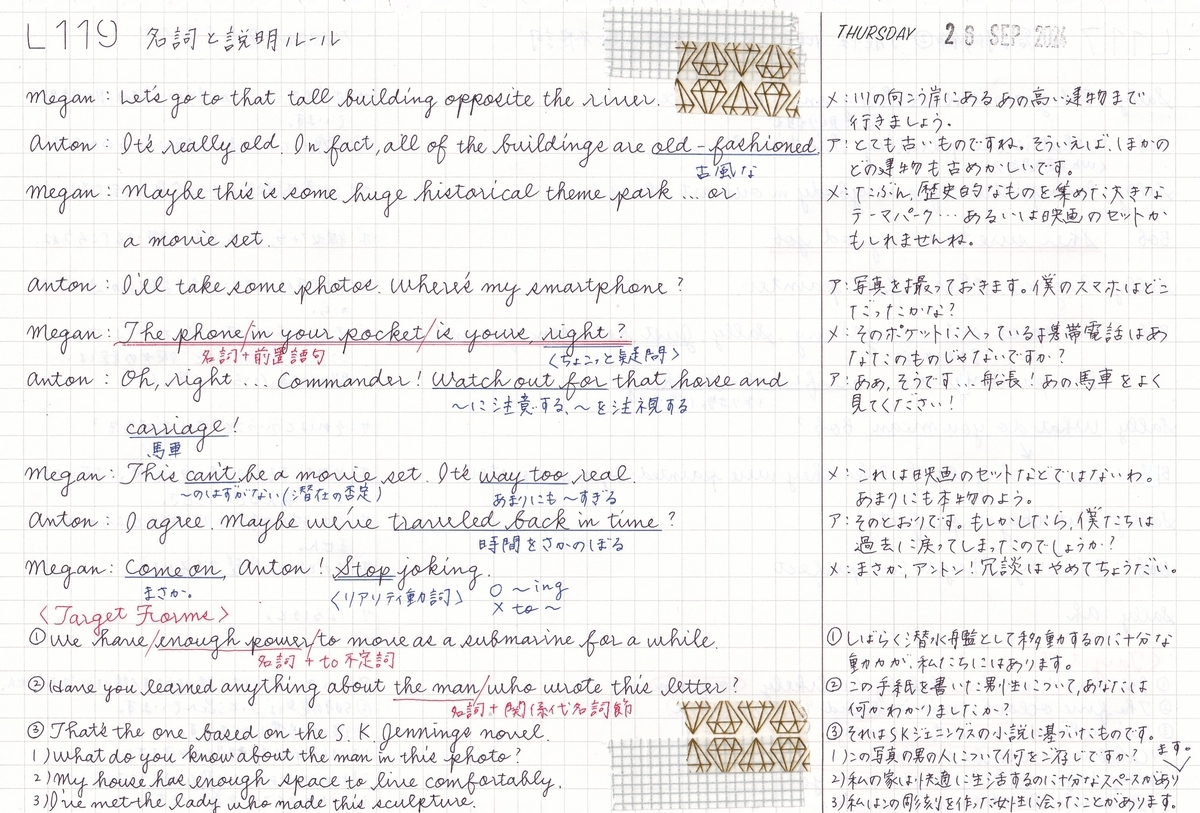 L119 名詞と説明ルール
THURSDAY 26 SEP 2024
Megan: Let's go to that tall building opposite the river.
Anton: It's really old. In fact, all of the buildings are old-fashioned.
古風な
Megan: Maybe this is some huge historical theme park ... or
a movie set.
Anton: I'll take some photos. Where's my smartphone?
Megan: The phone/in your pocket/is yours, right?
名詞+前置詞句 〈ちょこっと疑問〉
Anton: Oh, right ... Commander! Watch out for that horse and
〜に注意する、〜を注視する
carriage!
馬車
Megan: This can't be a movie set. It's way too real.
〜のはずがない(潜在の否定) あまりにも〜すぎる
Anton: I agree. Maybe we've traveled back in time?
時間をさかのぼる
Megan: Come on, Anton! Stop joking.
まさか。 〈リアリティ動詞〉 ○ 〜ing
× to 〜
〈Target Forms〉
①We have/enough power/to move as a submarine for a while.
名詞 + to 不定詞
②Have you learned anything about the man/who wrote this letter?
名詞+関係代名詞節
③That's the one based on the S. K. Jennings novel.
1)What do you know about the man in this photo?
2)My house has enough space to live comfortably.
3)I've met the lady who made this sculpture.
メ:川の向こう岸にあるあの高い建物まで
行きましょう。
ア:とても古いものですね。そういえば、ほかの
どの建物も古めかしいです。
メ:たぶん、歴史的なものを集めた大きな
テーマパーク…あるいは映画のセットか
もしれませんね。
ア:写真を撮っておきます。僕のスマホはどこ
だったかな?
メ:そのポケットに入っている携帯電話はあ
なたのものじゃないですか?
ア:ああ、そうです…船長!あの馬車をよく
見てください!
メ:これは映画のセットなどではないわ。
あまりにも本物のよう。
ア:そのとおりです。もしかしたら、僕たちは
過去に戻ってしまったのでしょうか?
メ:まさか、アントン!冗談はやめてちょうだい。
①しばらく潜水艦として移動するのに十分な
動力が、私たちにはあります。
②この手紙を書いた男性について、あなたは
何かわかりましたか?
③それはSKジェニングスの小説に基づいたものです。
1)この写真の男の人について何をご存じですか?
2)私の家は快適に生活するのに十分なスペースがあり
ます。
3)私はこの彫刻を作った女性に会ったことがあります。